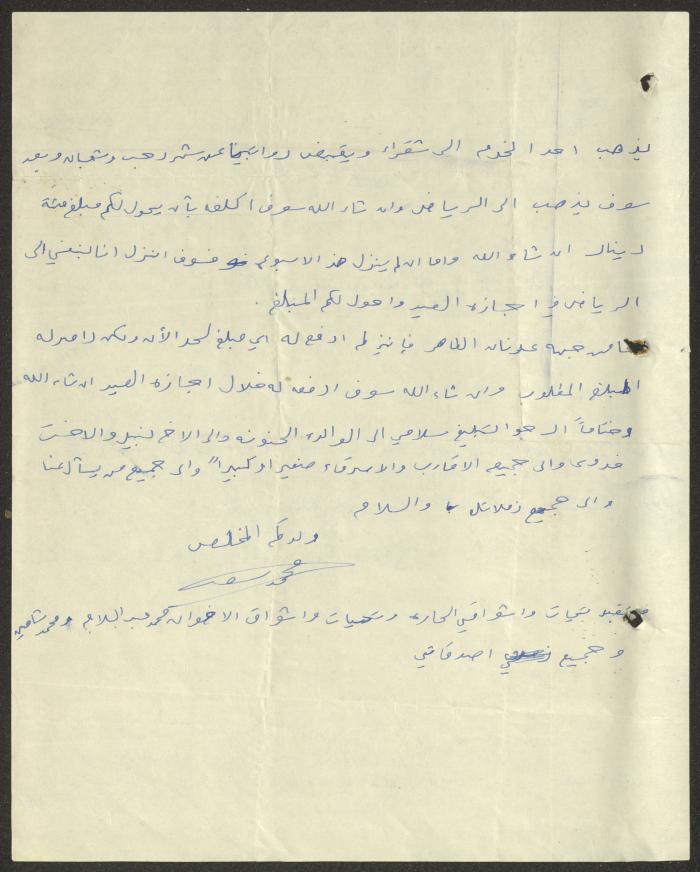 يذهب احد الخدم الى شقراء ويقبض رواتبنا عن شهر رجب وشعبان وبعد
سوف يذهب الى الرياض وان شاء الله سوف اكلفه بأن يحول لكم مبلغ مئة
دينار ان شاء الله واما ان لم ينزل هذا الاسبوع فسوف انزل انا بنفسي الى
الرياض في اجازة العيد واحول لكم المبلغ .
اما من جهة عدنان الطاهر فإنني لم ادفع له اي مبلغ لحد الآن ولكن
المبلغ المطلوب وان شاء الله سوف ادفعه له خلال اجازة العيد ان شاء الله
وختاماً ارجو تبليغ سلامي الى الوالدة الحنونه والى الاخ نبيل والاخت
فدوى والى جميع الاقارب والاصدقاء صغيرا او كبيرا" والى جميع من يسأل عنا
والى جميع زملائك والسلام
ولدكم المخلص
محمد سعيد
وتقبلو تحيات واشواقي الحاره وتحيات واشواق الاخوان محمد عبد السلام ومحمد شاهين
وجميع اصدقائي